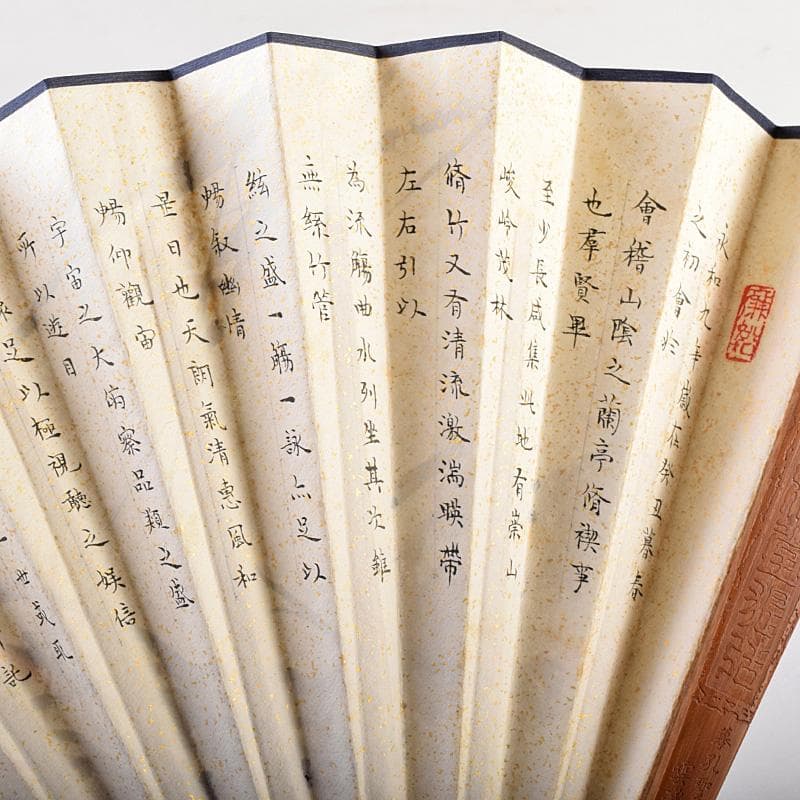 永和九年歲在癸丑暮春
之初會於
會稽山陰之蘭亭脩禊事
也羣賢畢
至少長咸集此地有崇山
峻岭茂林
脩竹又有清流激湍暎帶
左右引以
為流觴曲水列坐其次雖
無絲竹管
絃之盛一觴一詠亦足以
暢敘幽情
是日也天朗氣清惠風和
暢仰觀宙
宇宙之大俯察品類之盛
所以遊目
足以極視聽之娛信
世或取